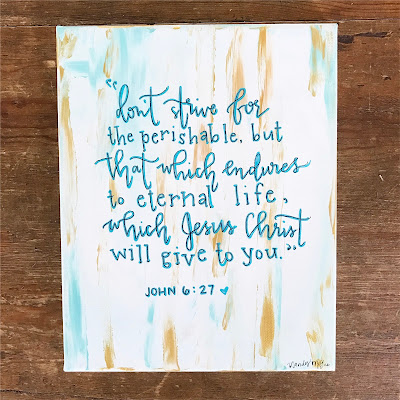 "dont strive for
the perishable, but
that which endures
to eternal life,
which Jesus Christ
will give to you."
JOHN 6:27